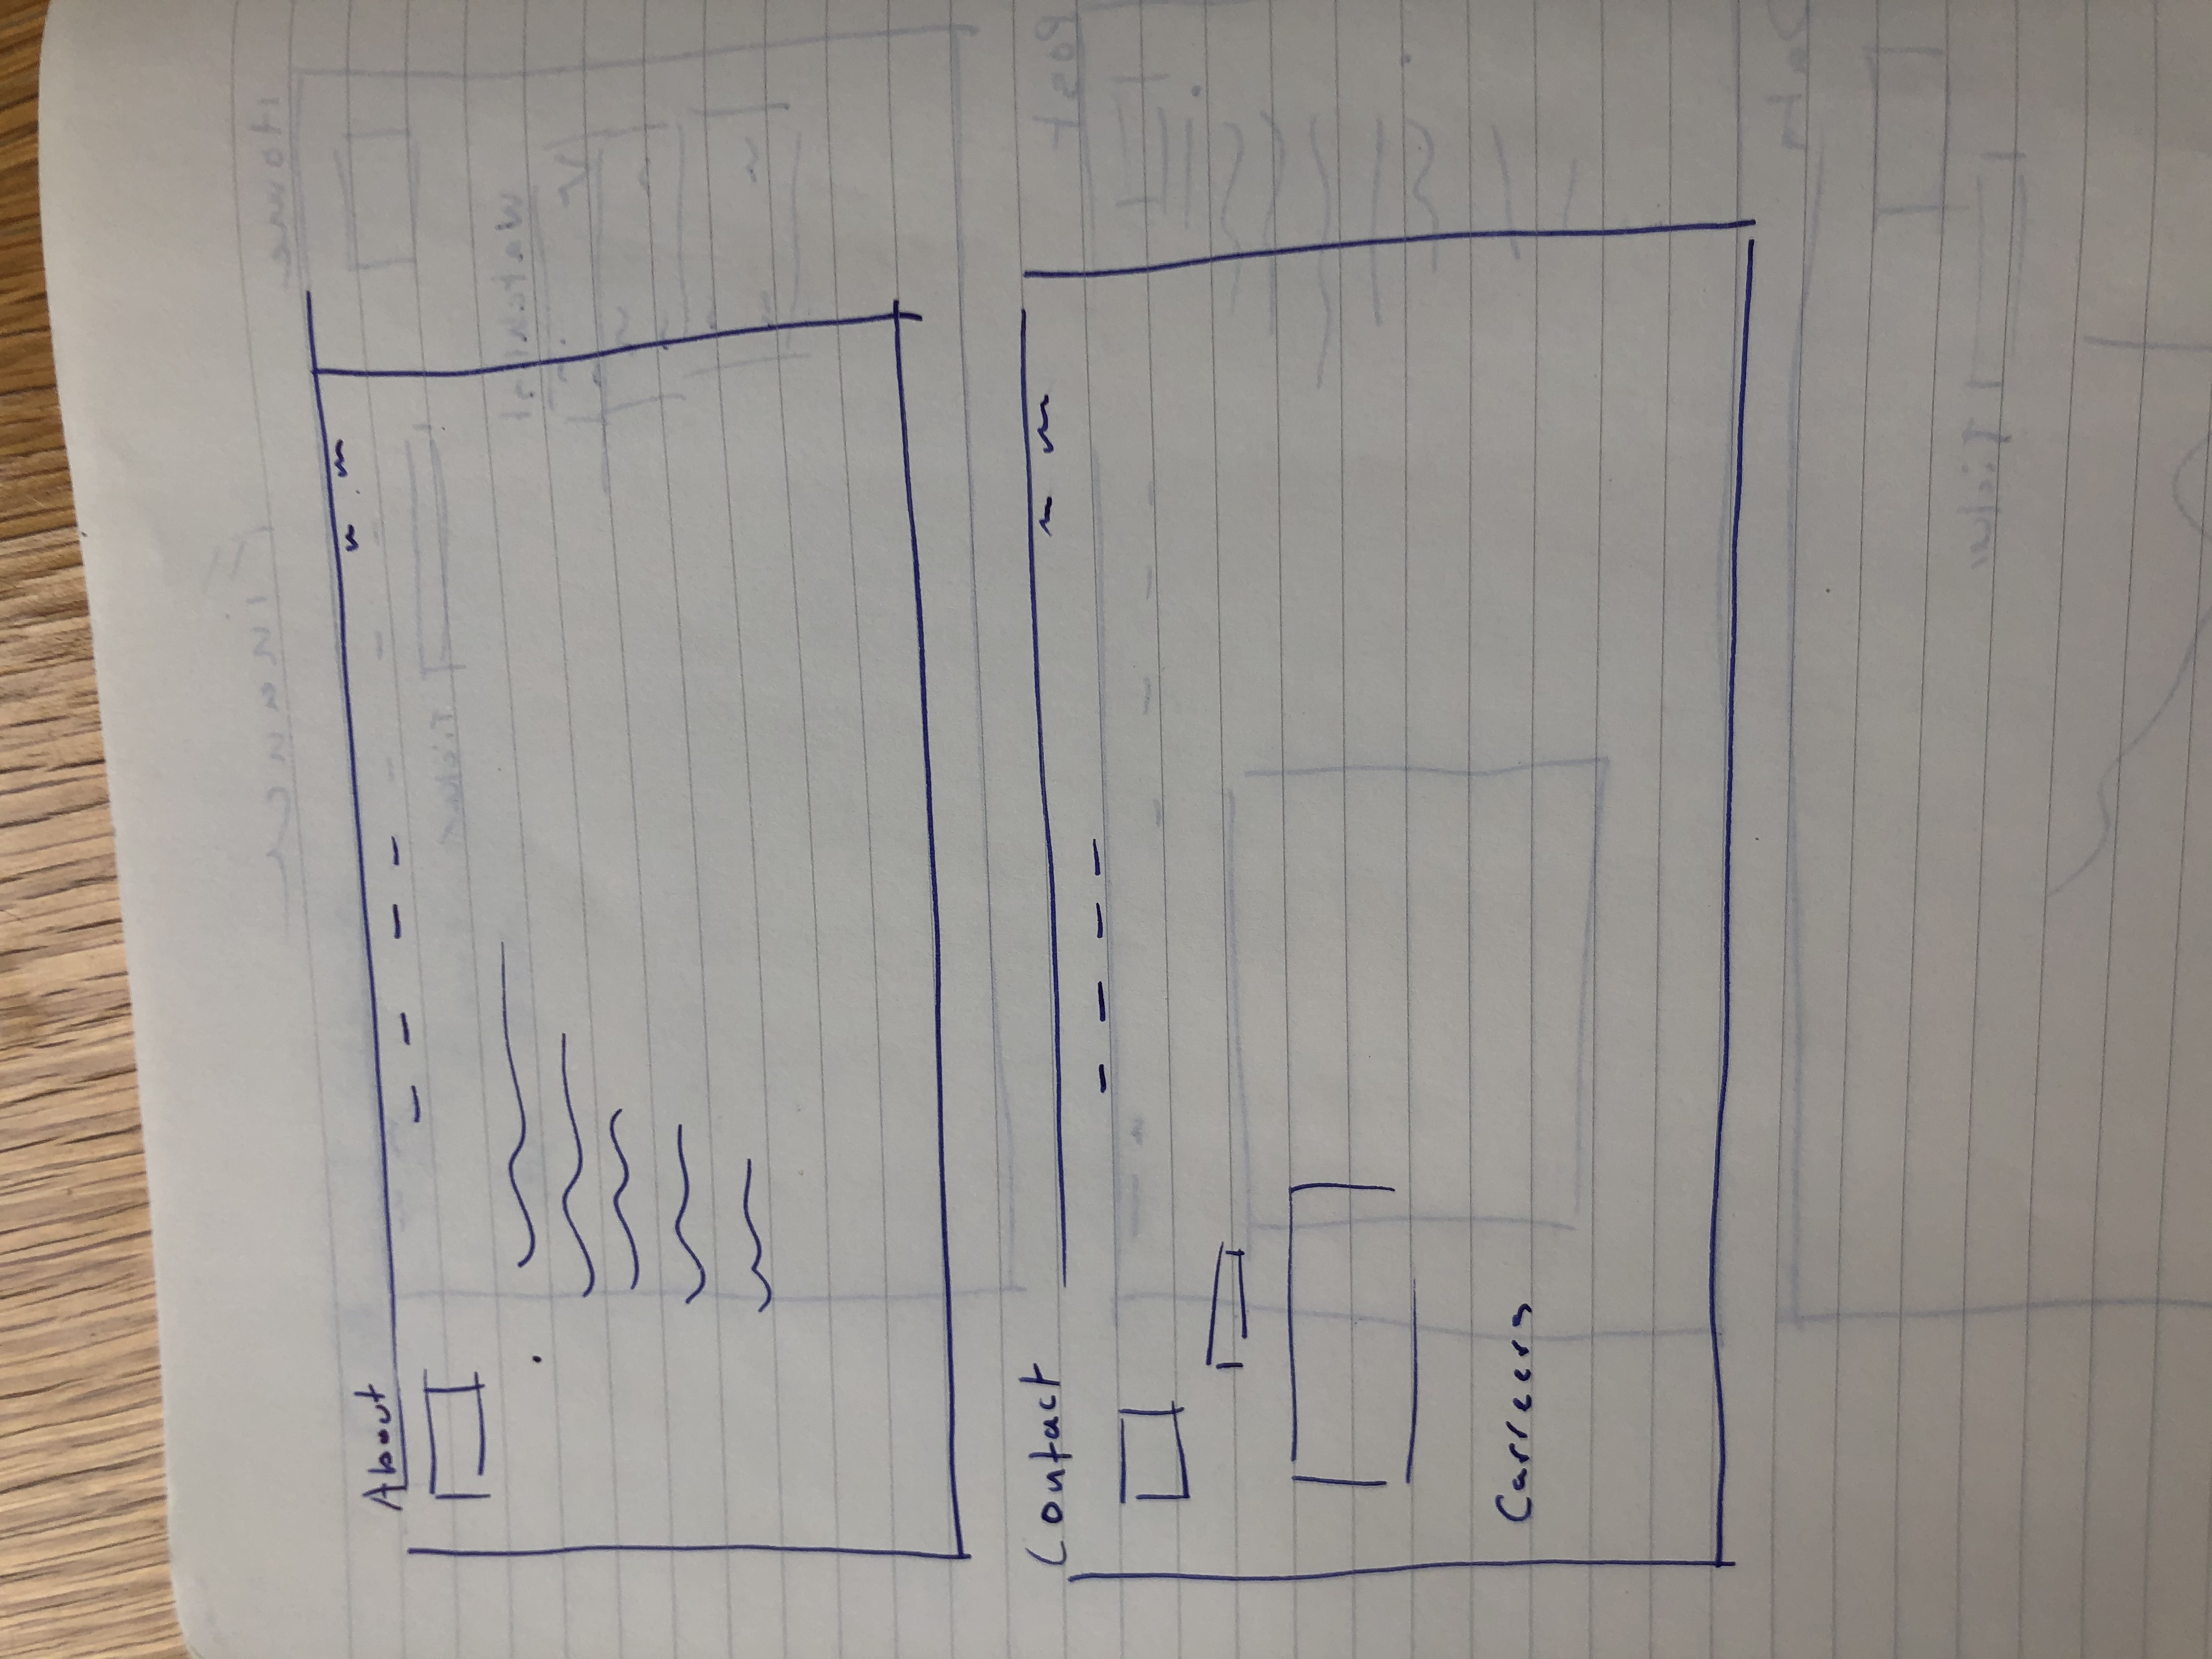 About
Contact
Carreers